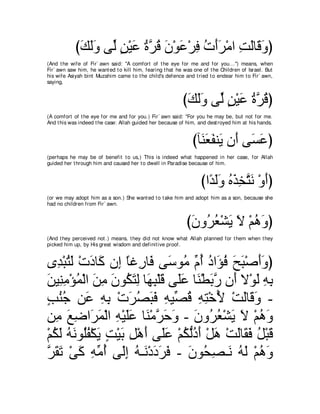 (وَقَالَتِ امْرَأَتُ فِرْعَوْنَ قُرَّةُ عَيْنٍ لِّى وَلَكَ)
(And the wife of Fir`awn said: "A comfort of the eye for me and for you...") means, when Fir`awn saw him, he wanted to kill him, fearing that he was one of the Children of Israel. But his wife Asiyah bint Muzahim came to the child's defence and tried to endear him to Fir`awn, saying,
(قُرَّةُ عَيْنٍ لِّى وَلَكَ)
(A comfort of the eye for me and for you.) Fir`awn said: "For you he may be, but not for me. And this was indeed the case. Allah guided her because of him, and destroyed him at his hands.
(عَسَى أَن يَنفَعَنَآ)
(perhaps he may be of benefit to us,) This is indeed what happened in her case, for Allah guided her through him and caused her to dwell in Paradise because of him.
(أَوْ نَتَّخِذَهُ وَلَدًا)
(or we may adopt him as a son.) She wanted to take him and adopt him as a son, because she had no children from Fir`awn.
(وَهُمْ لاَ يَشْعُرُونَ)
(And they perceived not.) means, they did not know what Allah planned for them when they picked him up, by His great wisdom and definitive proof.
(وَأَصْبَحَ فُؤَادُ أُمِّ مُوسَى فَارِغاً إِن كَادَتْ لَتُبْدِى
بِهِ لَوْلا أَن رَّبَطْنَا عَلَى قَلْبِهَا لِتَكُونَ مِنَ الْمُؤْمِنِينَ
- وَقَالَتْ لاٌّخْتِهِ قُصِّيهِ فَبَصُرَتْ بِهِ عَن جُنُبٍ
وَهُمْ لاَ يَشْعُرُونَ - وَحَرَّمْنَا عَلَيْهِ الْمَرَاضِعَ مِن
قَبْلُ فَقَالَتْ هَلْ أَدُلُّكُمْ عَلَى أَهْلِ بَيْتٍ يَكْفُلُونَهُ لَكُمْ
وَهُمْ لَهُ نَـصِحُونَ - فَرَدَدْنَـهُ إِلَى أُمِّهِ كَىْ تَقَرَّ